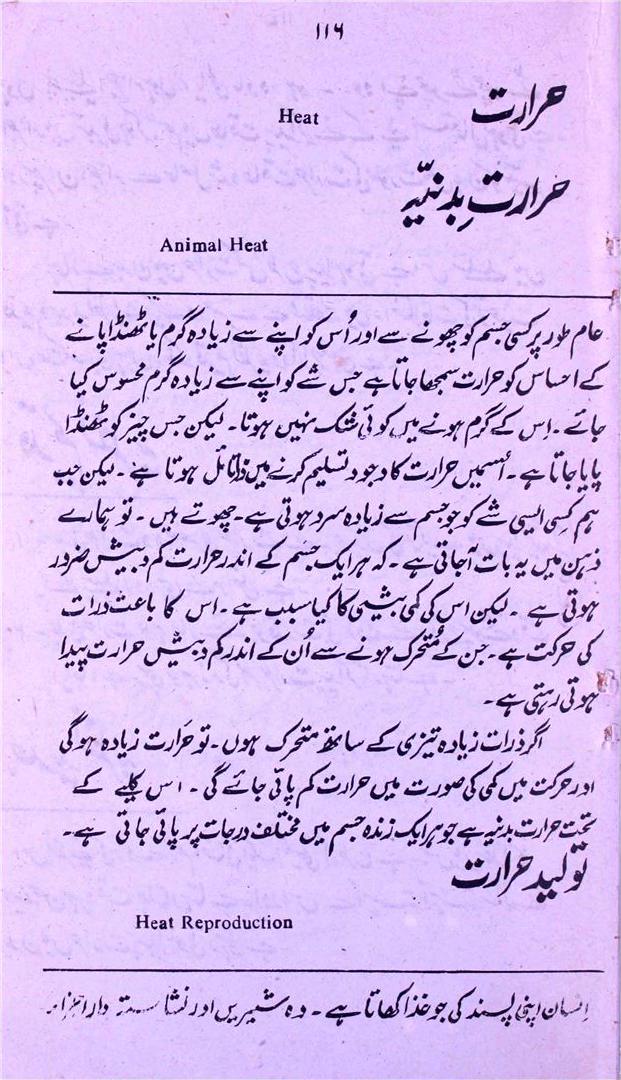 ۱۱۶
حرارت
Heat
حرارتِ بدنیّہ
Animal Heat
عام طور پر کسی جسم کو چھونے سے اور اُس کو اپنے سے زیادہ گرم یا ٹھنڈا پانے
کے احساس کو حرارت سمجھا جاتا ہے جس شے کو اپنے سے زیادہ گرم محسوس کیا
جائے۔ اِس کے گرم ہونے میں کوئی شک نہیں ہوتا۔ لیکن جس چیز کو ٹھنڈا
پایا جاتا ہے۔ اُسمیں حرارت کا وجود تسلیم کرنے میں تامّل ہوتا ہے۔ لیکن جب
ہم کِسی ایسی شے کو جو جسم سے زیادہ سرد ہوتی ہے۔ چھوتے ہیں۔ تو ہمارے
ذہن میں یہ بات آجاتی ہے۔ کہ ہر ایک جسم کے اندر حرارت کم و بیش ضرور
ہوتی ہے۔ لیکن اس کی کمی بیشی کا کیا سبب ہے۔ اس کا باعث ذرات
کی حرکت ہے۔ جن کے مُتحرک ہونے سے اُن کے اندر کم و بیش حرارت پیدا
ہوتی رہتی ہے۔
اگر ذرات زیادہ تیزی کے ساتھ متحرک ہوں۔ تو حَرارت زیادہ ہوگی
اور حرکت میں کمی کی صورت میں حرارت کم پائی جائے گی۔ اس کلیے کے
تحت حرارت بدنیہ ہے جو ہر ایک زندہ جسم میں مختلف درجات پر پائی جاتی ہے۔
تولید حرارت
Heat Reproduction
انسان اپنی پسند کی جو غذا کھاتا ہے۔ وہ شیریں اور نشاستہ دار اجزاء